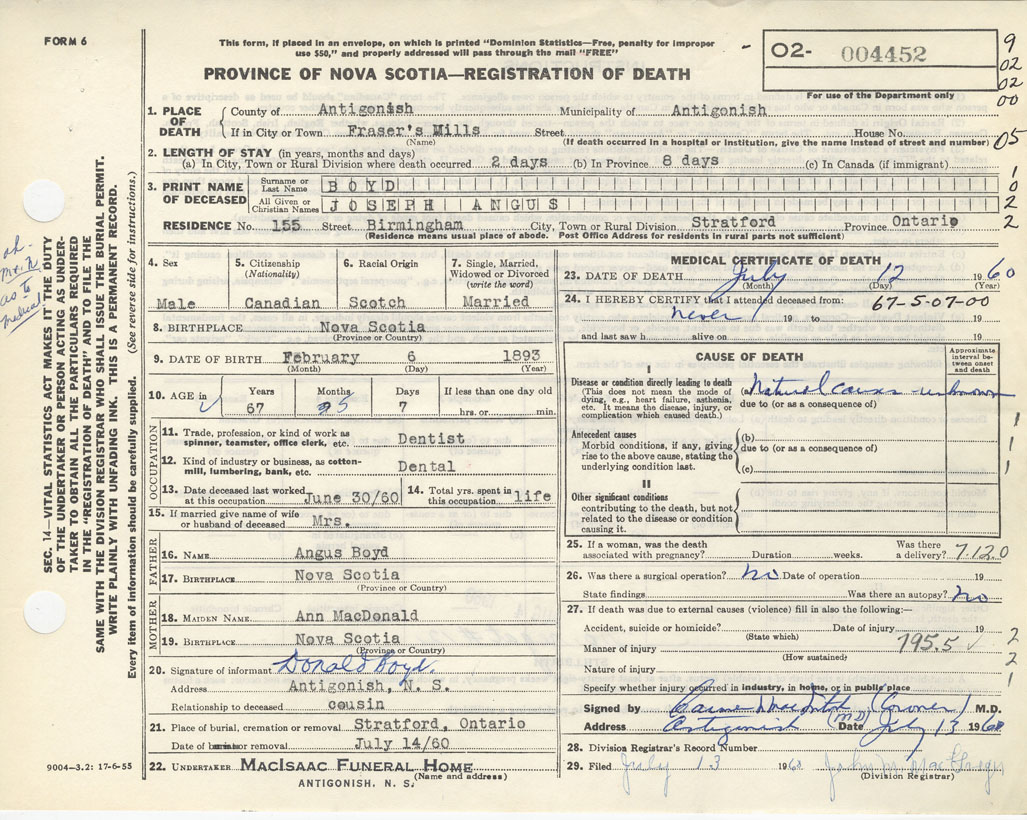 FORM 6
This form, if placed in an envelope, on which is printed "Dominion Statistics—Free, penalty for improper
use $50," and properly addressed will pass through the mail "FREE"
O2- 004452
For use of the Department only
9
02
02
00
05
1
0
2
2
PROVINCE OF NOVA SCOTIA—REGISTRATION OF DEATH
1. PLACE OF DEATH
County of Antigonish Municipality of Antigonish
If in City or Town Fraser's Mills Street House No.
(Name) (If death occurred in a hospital or institution, give the name instead of street and number)
2. LENGTH OF STAY (in years, months and days)
(a) In City, Town or Rural Division where death occurred 2 days (b) In Province 8 days (c) In Canada (if immigrant)
3. PRINT NAME OF DECEASED
Surname or Last Name BOYD
All Given or Christian Names JOSEPH ANGUS
RESIDENCE No. 155 Street Birmingham City, Town or Rural Division Stratford Province Ontario
(Residence means usual place of abode. Post Office Address for residents in rural parts not sufficient)
SEC. 14—VITAL STATISTICS ACT MAKES IT THE DUTY
OF THE UNDERTAKER OR PERSON ACTING AS UNDER-
TAKER TO OBTAIN ALL THE PARTICULARS REQUIRED
IN THE "REGISTRATION OF DEATH" AND TO FILE THE
SAME WITH THE DIVISION REGISTRAR WHO SHALL ISSUE THE BURIAL PERMIT.
WRITE PLAINLY WITH UNFADING INK. THIS IS A PERMANENT RECORD.
Every item of information should be carefully supplied. (See reverse side for instructions.)
as to
medical
4. Sex
Male
5. Citizenship
(Nationality)
Canadian
6. Racial Origin
Scotch
7. Single, Married,
Widowed or Divorced
(write the word)
Married
8. BIRTHPLACE Nova Scotia
(Province or Country)
9. DATE OF BIRTH February 6 1893
(Month) (Day) (Year)
10. AGE in
Years Months Days If less than one day old
67 5 7 hrs. or min.
OCCUPATION
11. Trade, profession, or kind of work as
spinner, teamster, office clerk, etc. Dentist
12. Kind of industry or business, as cotton-
mill, lumbering, bank, etc. Dental
13. Date deceased last worked
at this occupation June 30/60
14. Total yrs. spent in
this occupation life
15. If married give name of wife
or husband of deceased Mrs.
FATHER
16. NAME Angus Boyd
17. BIRTHPLACE Nova Scotia
(Province or Country)
MOTHER
18. MAIDEN NAME Ann MacDonald
19. BIRTHPLACE Nova Scotia
(Province or Country)
20. Signature of informant Donald Boyd.
Address Antigonish, N. S.
Relationship to deceased cousin
21. Place of burial, cremation or removal Stratford, Ontario
Date of burial or removal July 14/60
22. UNDERTAKER MACISAAC FUNERAL HOME
(Name and address)
ANTIGONISH, N. S.
9004—3.2: 17-6-55
MEDICAL CERTIFICATE OF DEATH
23. DATE OF DEATH July 12 1960
(Month) (Day) (Year)
24. I HEREBY CERTIFY that I attended deceased from: 67-5-07-00
never 19 to 19
and last saw h alive on 19
CAUSE OF DEATH
Approximate
interval be-
tween onset
and death
I
Disease or condition directly leading to death
(This does not mean the mode of
dying, e.g., heart failure, asthenia,
etc. It means the disease, injury, or
complication which caused death.)
(a) Natural causes unknown
due to (or as a consequence of)
Antecedent causes
Morbid conditions, if any, giving
rise to the above cause, stating the
underlying condition last.
(b)
due to (or as a consequence of)
(c)
1
1
1
II
Other significant conditions
contributing to the death, but not
related to the disease or condition
causing it.
25. If a woman, was the death
associated with pregnancy? Duration weeks.
Was there
a delivery? 7.12.0
26. Was there a surgical operation? no Date of operation 19
State findings Was there an autopsy? no
27. If death was due to external causes (violence) fill in also the following:—
Accident, suicide or homicide? Date of injury 19
(State which)
Manner of injury 795.5
(How sustained)
Nature of injury
Specify whether injury occurred in industry, in home, or in public place
2
2
1
Signed by (Coroner) M.D.
Address Antigonish (MD) Date July 13 1960
28. Division Registrar's Record Number
29. Filed July 13 1960
(Division Registrar)